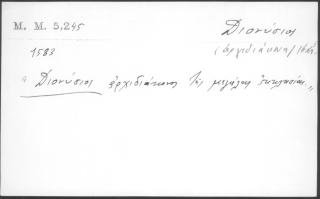 M. M. 5,245
Διονύσιος
(ἀρχιδιάκονος)
1583
"Διονύσιος ἀρχιδιάκονος τῆς μεγάλης ἐκκλησίας"